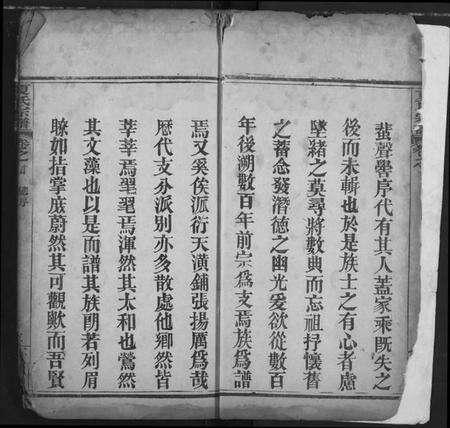 蜚聲黌序代有其人蓋家乘既失之
後而未輯也於是族士之有心者慮
墜緒之莫尋將數典而忘祖抒懷舊
之蓄念發潛德之幽光爰欲從數百
年後溯數百年前宗為支焉族為譜
焉又奚俟派衍天潢鋪張揚厲為哉
歷代支分派別亦多散處他鄉然皆
莘莘焉皞皞焉渾然其太和也鶯然
其文藻也以是而譜其族朗若列眉
瞭如指掌宬蔚然其可觀歟而吾賢
夏氏宗譜
卷之首